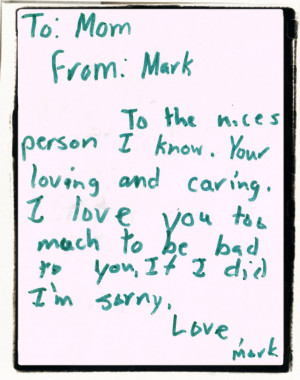 To: Mom
From: Mark
To the nices
person I know. Your
loving and caring.
I love you too
much to be bad
to you, If I did
I'm sorry.
Love
Mark